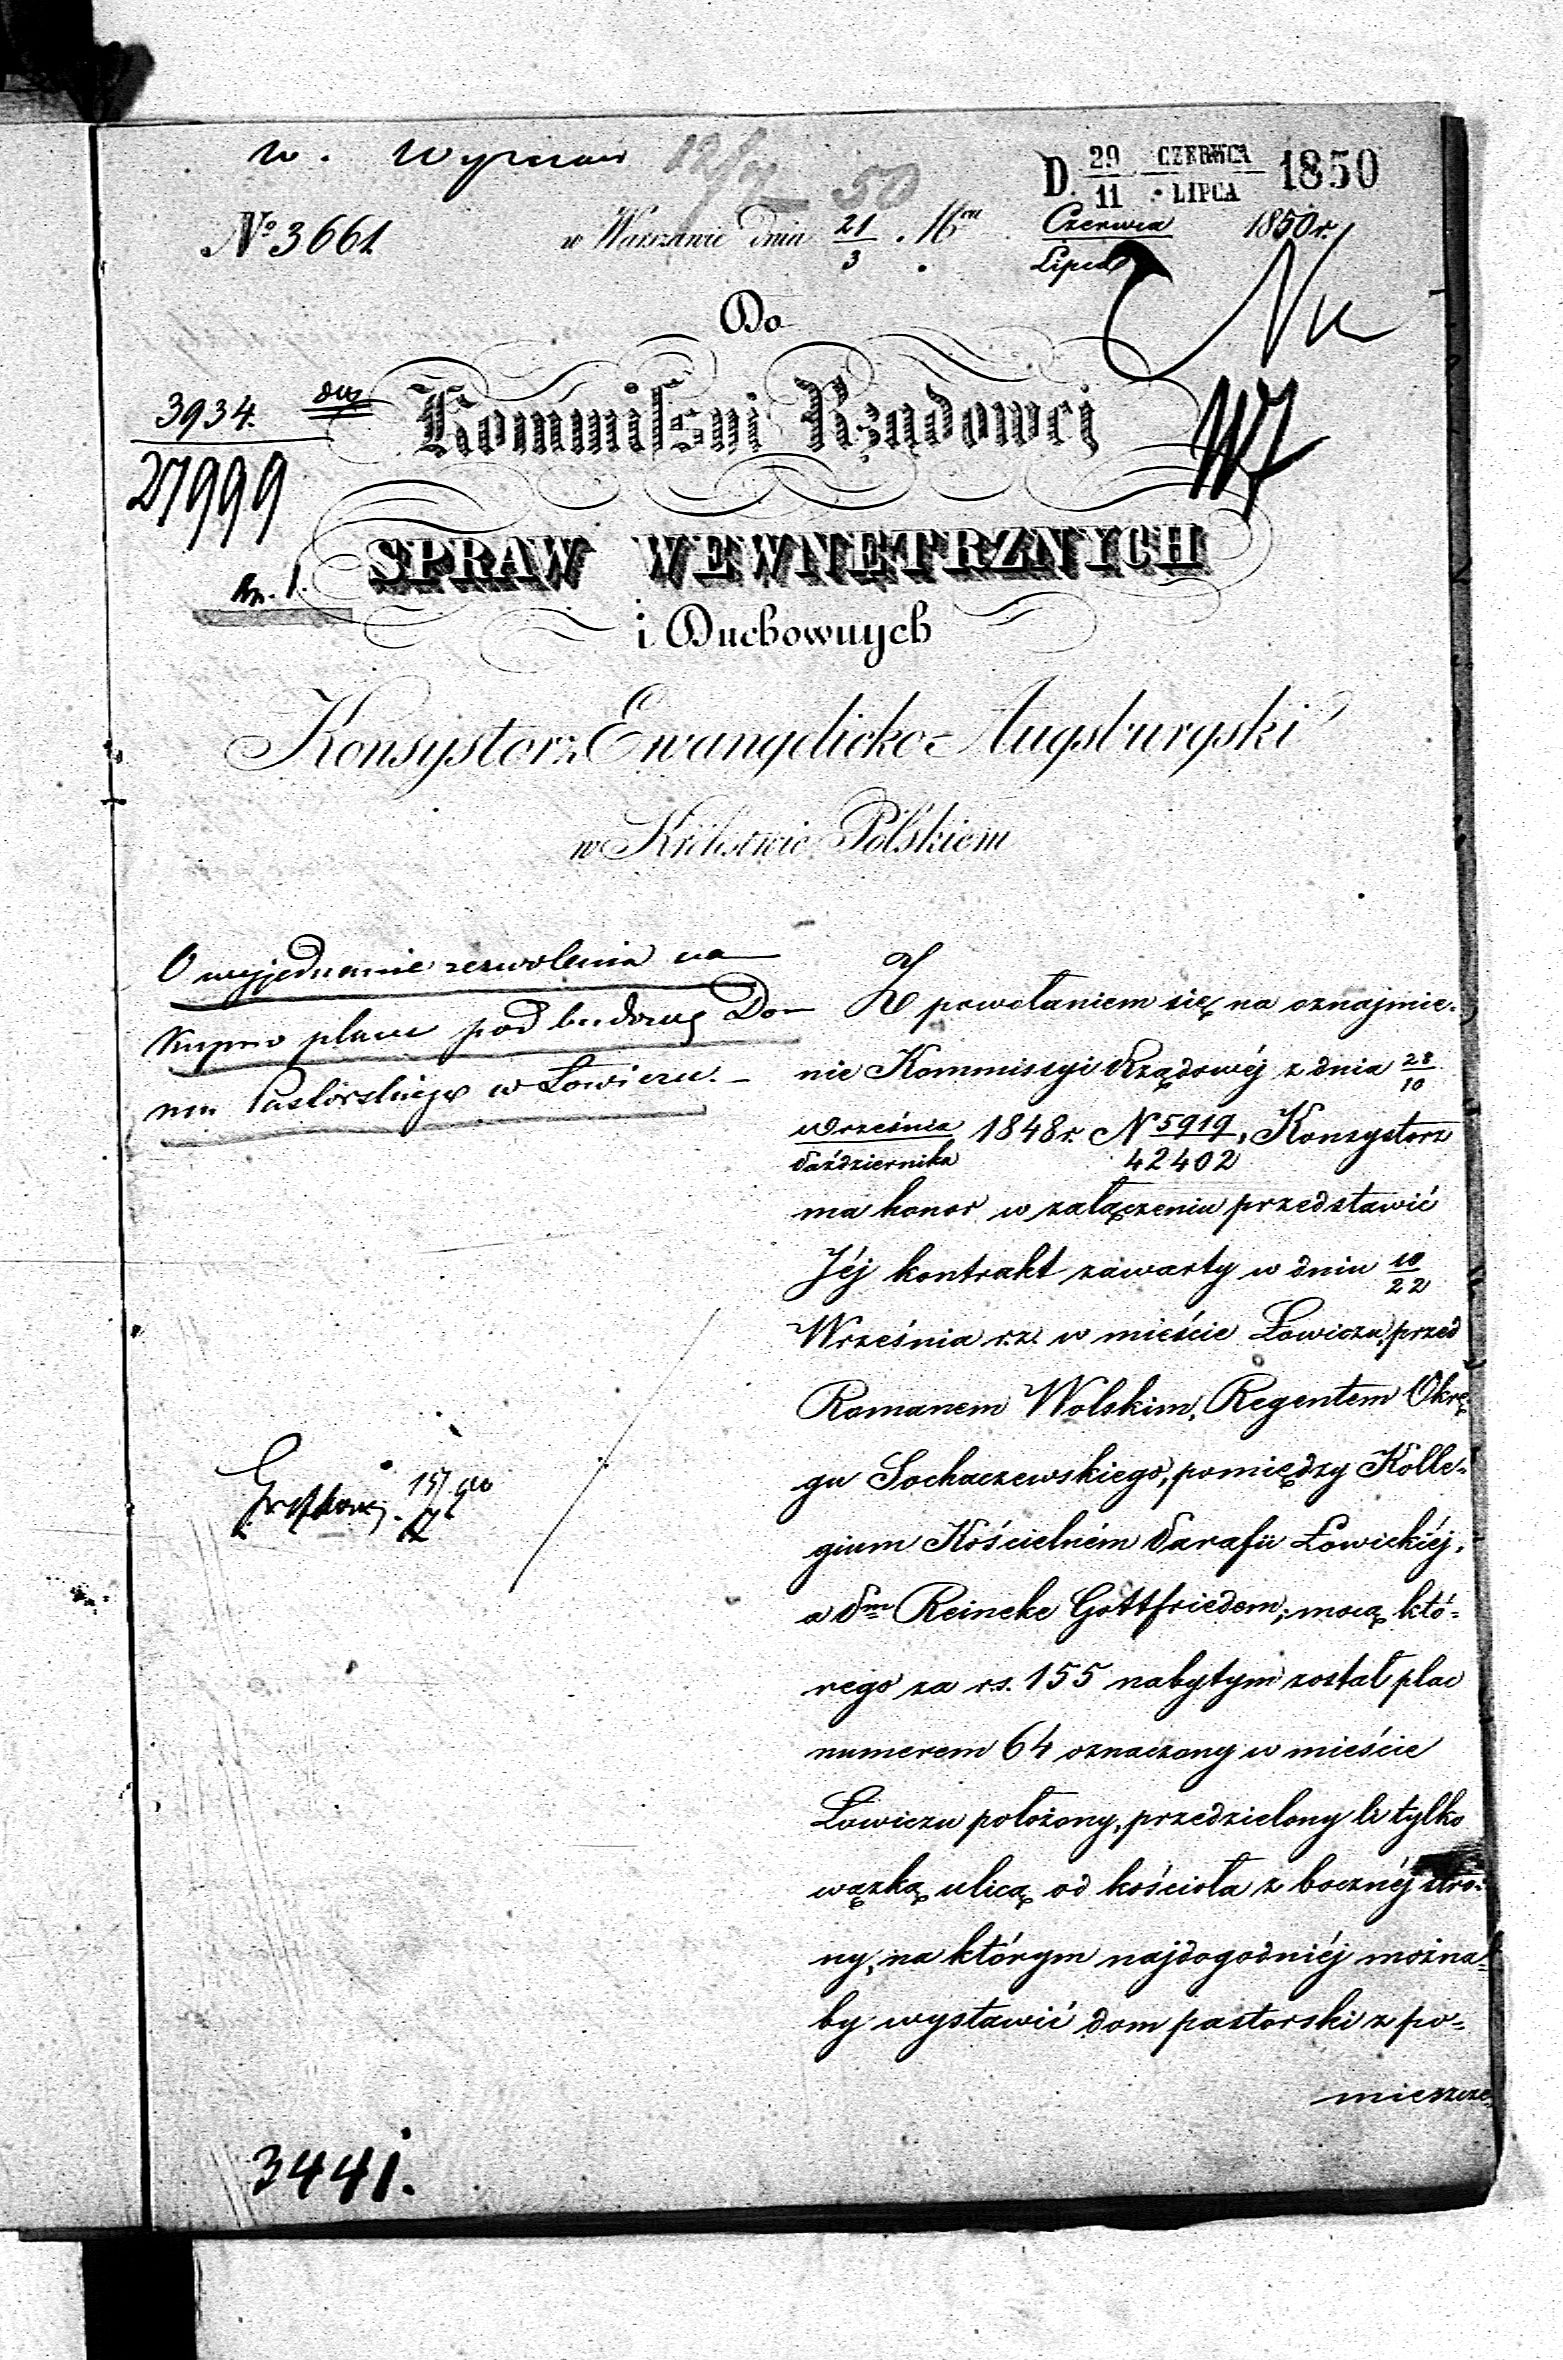 D. 29/11 CZERWCA/LIPCA 1850
№ 3661
w Warszawie dnia 21/3 Czerwca/Lipca 1850 r.
Do
3934.
27999
Kommissyi Rządowej
SPRAW WEWNĘTRZNYCH
i Duchownych
Konsystorz Ewangelicko-Augsburgski
w Królestwie Polskiem
O wyjednanie zezwolenia na
kupno placu pod budowę Do-
mu Pastorskiego w Łowiczu. –
Z powołaniem się na oznajmie-
nie Kommissyi Rządowéj z dnia 28/10
Września/Października 1848 r. N 5919/42402, Konsystorz
ma honor w załączeniu przedstawić
Jéj kontrakt zawarty w dniu 10/22
Września r.z. w mieście Łowiczu, przed
Romanem Wolskim, Regentem Okrę-
gu Sochaczewskiego, pomiędzy Kolle-
gium Kościelném Parafii Łowickiéj,
a Pm Reineke Gottfriedem, mocą któ-
rego za rs. 155 nabytym został plac
numerem 64 oznaczony w mieście
Łowiczu położony, przedzielony li tylko
wązką ulicą od kościoła z bocznéj stro-
ny, na którym najdogodniéj można-
by wystawić dom pastorski z po-
mieszcze-
3441.